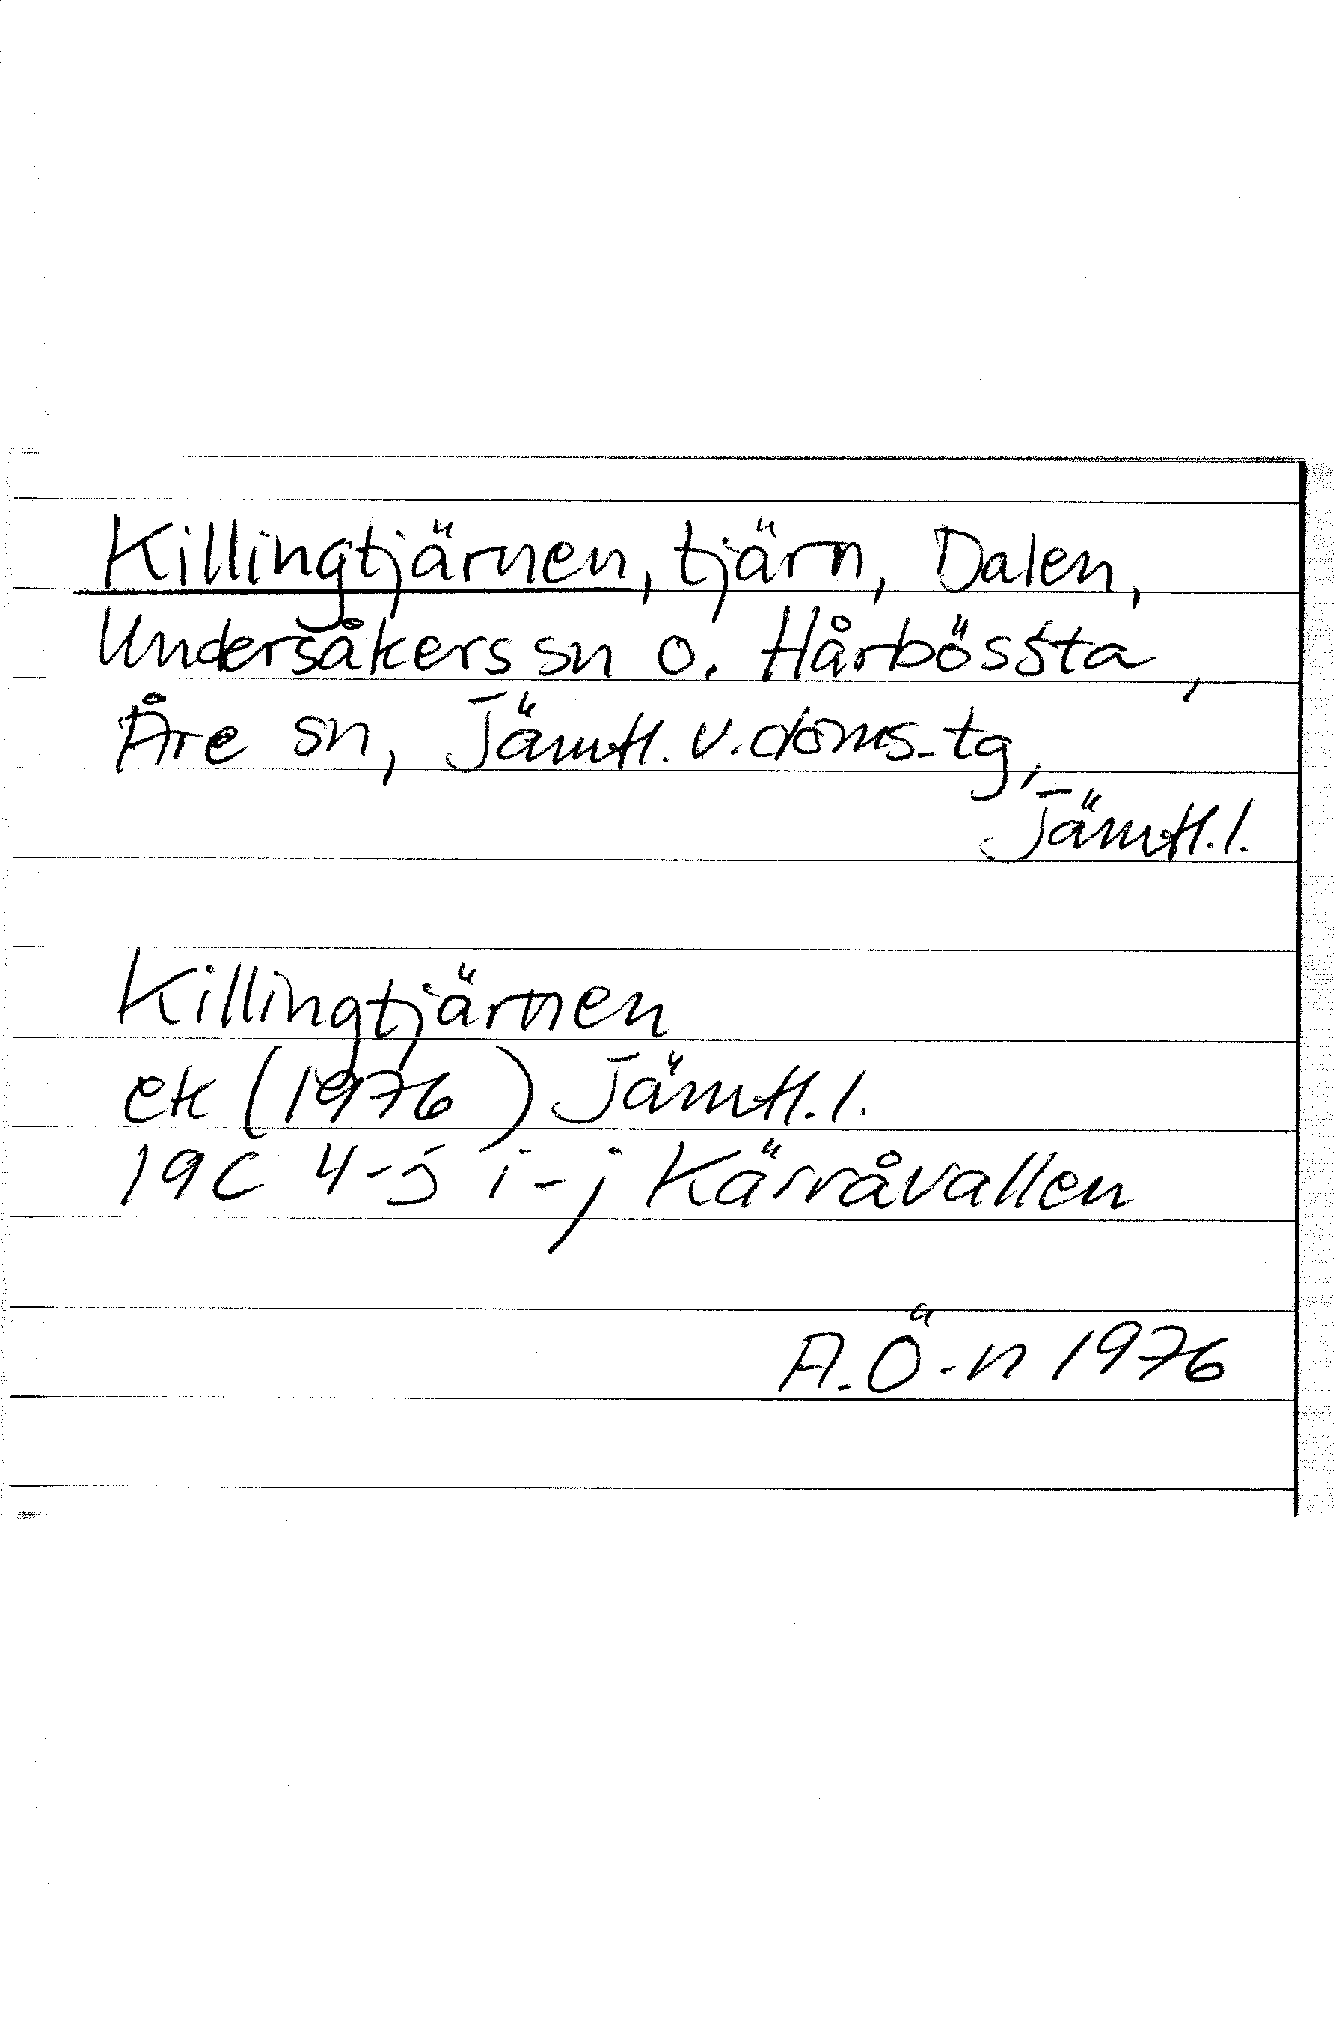 Killingtjärnen, tjärn, Dalen,
Undersåkers sn o. Hårbössta,
Åre sn, Jämtl. v. doms-tg,
Jämtl. l.
Killingtjärnen
ek (1976) Jämtl. l.
19C 4-5 i-j Kärråvallen
A. Ö-n 1976